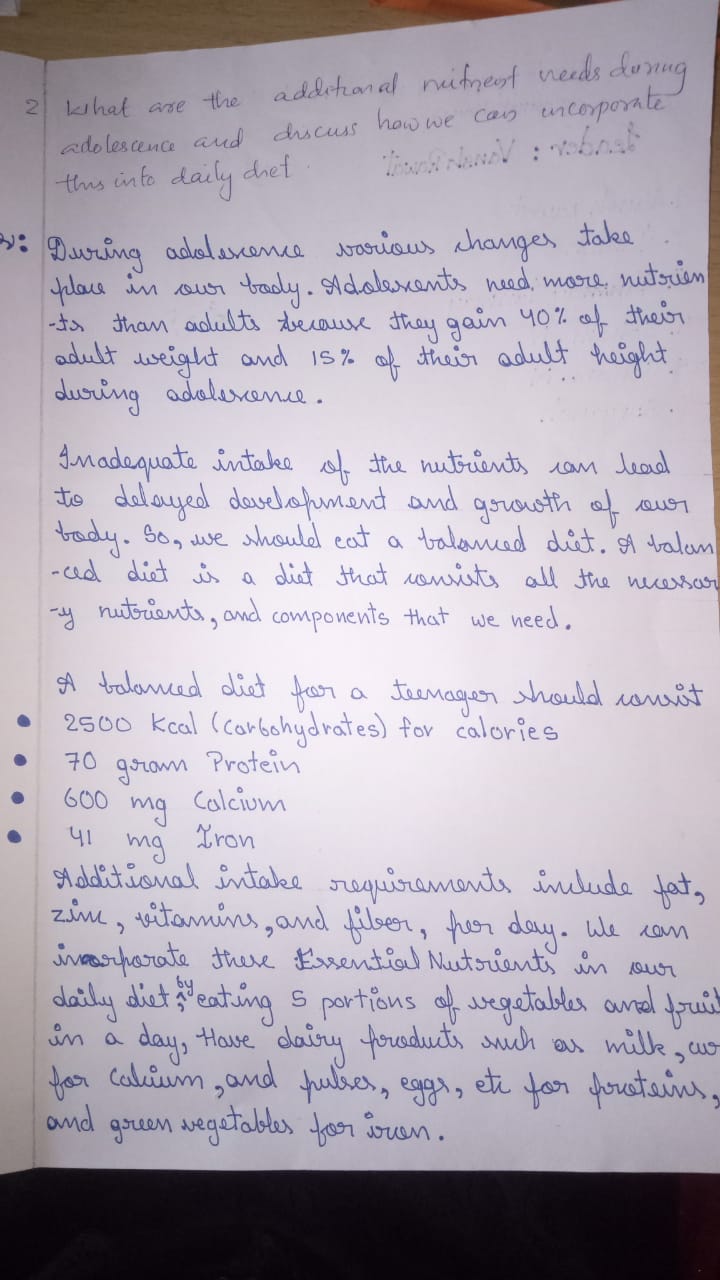 2 What are the additional nutrient needs during
adolescence and discuss how we can incorporate
this into daily diet.
During adolescence various changes take
place in our body. Adolescents need more nutrien
-ts than adults because they gain 40% of their
adult weight and 15% of their adult height
during adolescence.
Inadequate intake of the nutrients can lead
to delayed development and growth of our
body. So, we should eat a balanced diet. A balan
-ced diet is a diet that consists all the necessar
-y nutrients, and components that we need.
A balanced diet for a teenager should consist
• 2500 Kcal (Carbohydrates) for calories
• 70 gram Protein
• 600 mg Calcium
• 41 mg Iron
Additional intake requirements include fat,
zinc, vitamins, and fiber, per day. We can
incorporate these Essential Nutrients in our
daily diet by eating 5 portions of vegetables and fruit
in a day, Have dairy products such as milk, cu
for Calcium, and pulses, eggs, etc for proteins,
and green vegetables for iron.